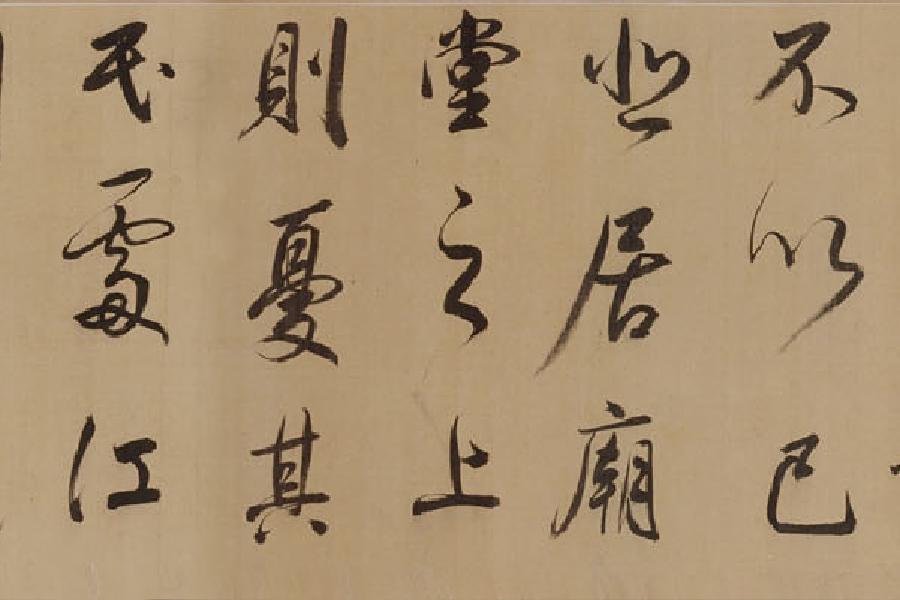 不以己
悲居廟
堂之上
則憂其
民處江